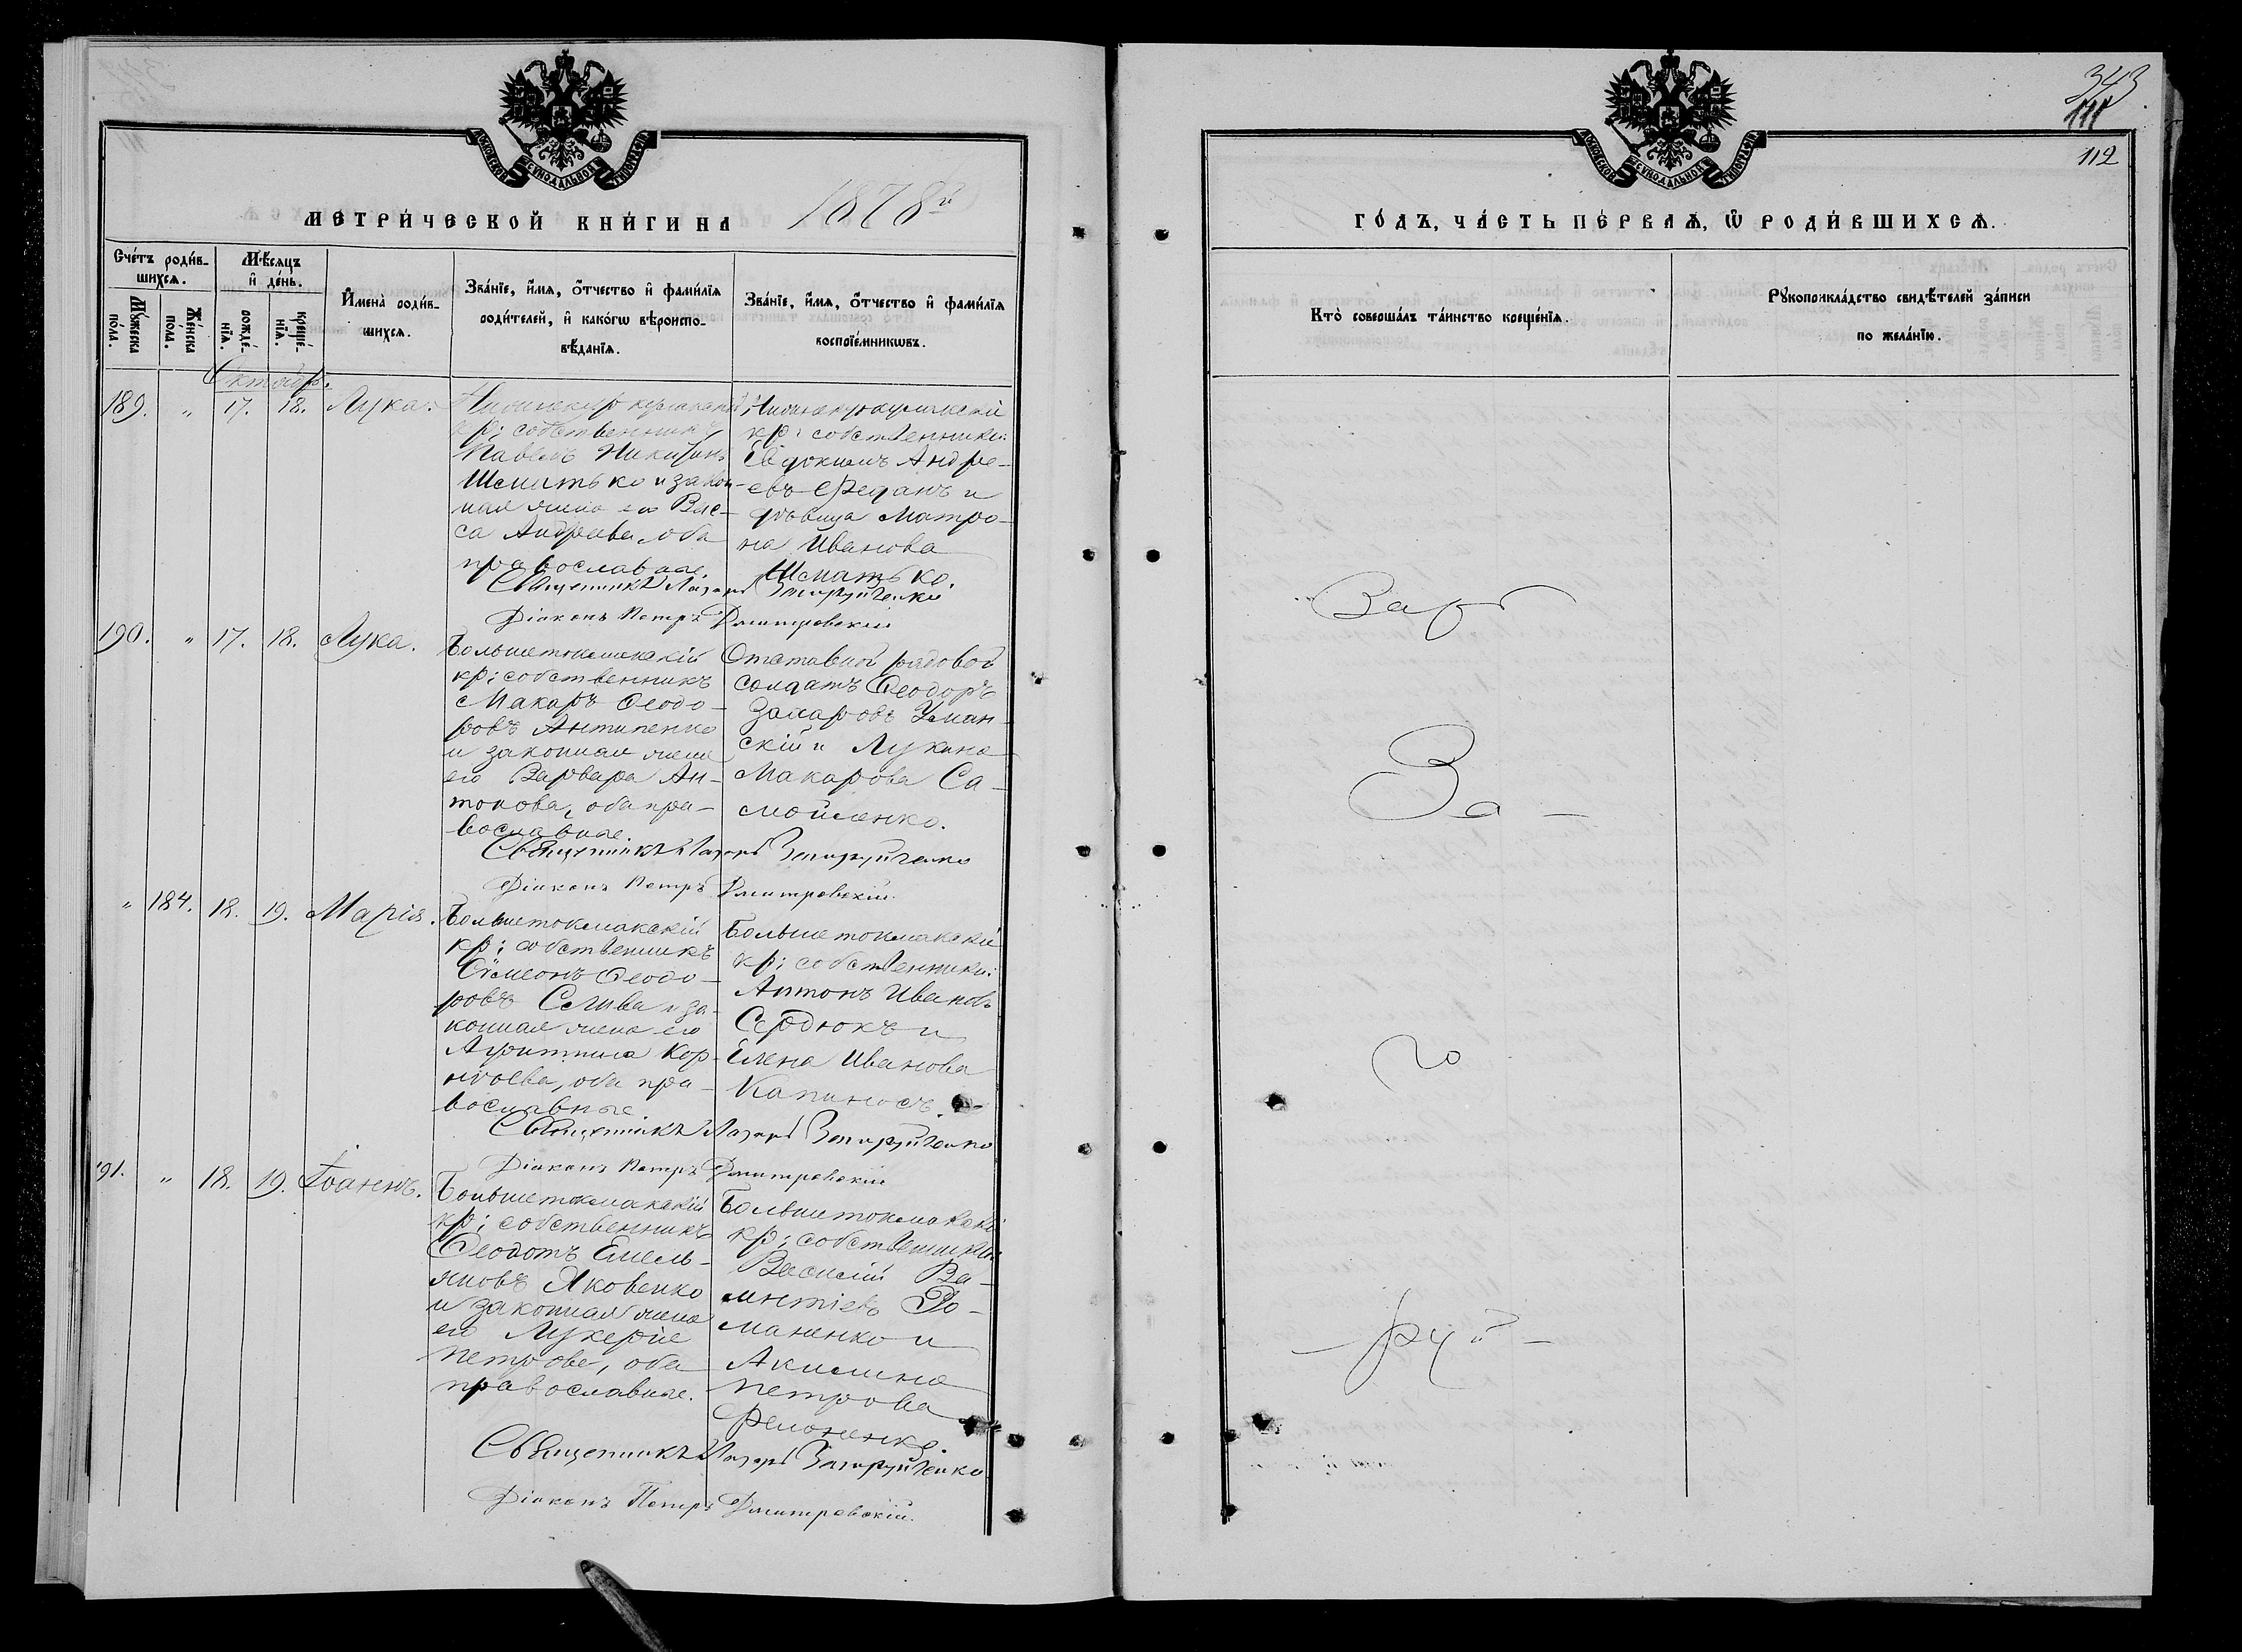 МЕТРИЧЕСКОЙ КНИГИ НА 1878й
Счетъ родив-
шихся.
Мужеска пола.
Женска пола.
Мѣсяцъ и день.
рожде-нія.
креще-нія.
Имена родив-
шихся.
Званіе, имя, отчество и фамилія
родителей, и какогѡ вѣроиспо-
вѣданія.
Званіе, имя, отчество и фамилія
воспріемникѡвъ.
Октябрь.
189. " 17. 18. Лука.
кр: собственникъ
Павелъ Никитинъ
Шематько и закон-
ная жена его Вас-
са Андреева, оба
православные.
кр: собственники:
Евдокимъ Андре-
евъ Феданъ и
вдовица Матро-
на Иванова
Шематько.
Священникъ Лазарь
Діаконъ Петръ Дмитровскій
190. " 17. 18. Лука.
Большетокмакскій
кр: собственникъ
Макаръ Ѳеодо-
ровъ Антипенко
и законная жена
его Варвара Ан-
тонова, оба пра-
вославные.
Отставной рядовой
солдатъ Ѳеодоръ
Захаровъ Уман-
скій и Лукина
Макарова Са-
мойленко.
Священникъ Лазарь
Діаконъ Петръ Дмитровскій.
" 184. 18. 19. Марія.
Большетокмакскій
кр: собственникъ
Сѵмеонъ Ѳеодо-
ровъ Слива и за-
конная жена его
Агриппина Кор-
ніева, оба пра-
вославные.
Большетокмакскіе
кр: собственники:
Антонъ Ивановъ
Сердюкъ и
Елена Иванова
Капиносъ.
Священникъ Лазарь
Діаконъ Петръ Дмитровскій
191. " 18. 19. Іоаннъ.
Большетокмакскій
кр: собственникъ
Ѳеодотъ Емель-
яновъ Яковенко
и законная жена
его Лукерія
Петрова, оба
православные.
Большетокмакскіе
кр: собственники:
Василій Ва-
лентіевъ Ро-
маненко и
Акилина
Петрова
Филоненко.
Священникъ Лазарь
Діаконъ Петръ Дмитровскій.
343
111
112
ГОДЪ, ЧАСТЬ ПЕРВАЯ, Ѡ РОДИВШИХСЯ.
Кто совершалъ таинство крещенія.
Рукоприкладство свидѣтелей записи
по желанію.
За